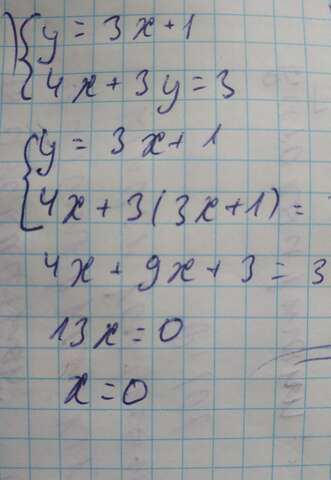 ) { y = 3x+1
4x+3y=3
{ y = 3x+1
4x+3(3x+1)=
4x+9x+3=3
13x=0
x=0